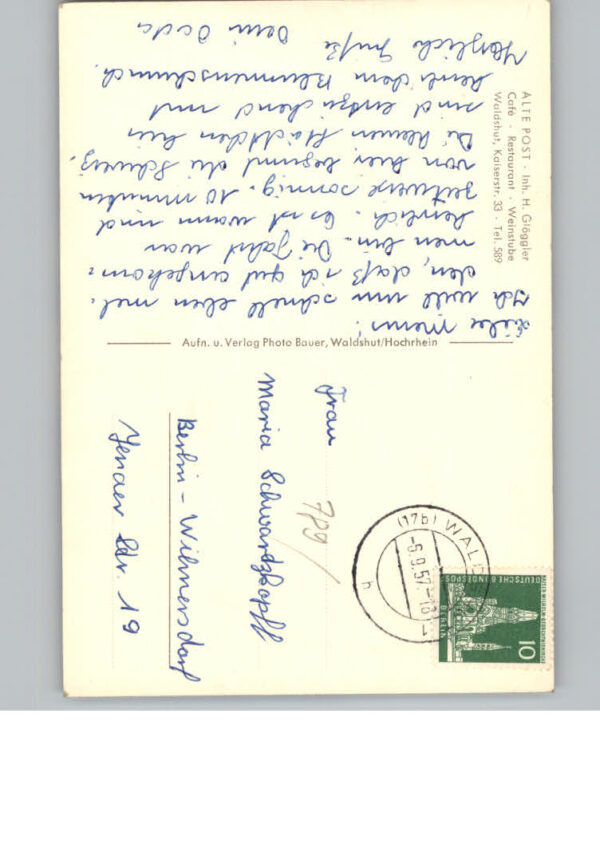 ALTE POST · Inh. H. Glöggler
Café · Restaurant · Weinstube
Waldshut, Kaiserstr. 33 · Tel. 589
Aufn. u. Verlag Photo Bauer, Waldshut/Hochrhein
Liebe
Ich will nur schnell eben mel-
den, daß ich gut angekom-
men bin. Die Fahrt war
herrlich. Es ist warm und
zeitweise sonnig. 10 Minuten
von hier beginnt die Schweiz.
Die kleinen Städtchen hier
sind entzückend mit
herrlichem Blumenschmuck.
Herzlich Grüße
Frau
Maria Schwardtkopff
Berlin - Wilmersdorf
Jenaer Str. 19
(17b) WALDS
-6.9.57.-18
h
DEUTSCHE BUNDESPOST
BERLIN
10